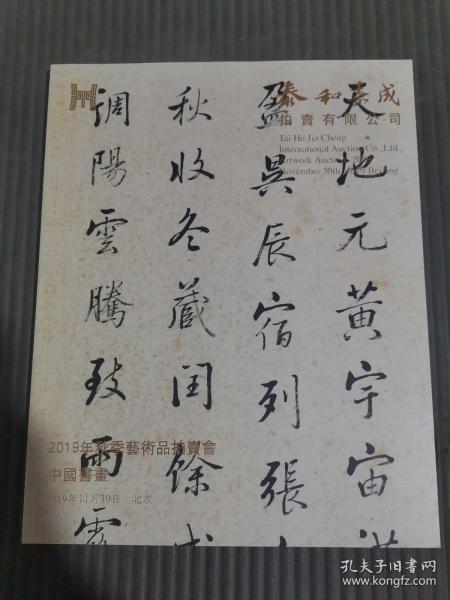 泰和嘉成
拍賣有限公司
Tai He Jia Cheng
International Auction Co.,Ltd.
Artwork Auction
November.30th, 2019 Beijing
天地元黃宇宙洪
盈昃辰宿列張
秋收冬藏閏餘成
調陽雲騰致雨露
2019年秋季藝術品拍賣會
中國書畫
2019年11月30日 北京
孔夫子旧书网
www.kongfz.com